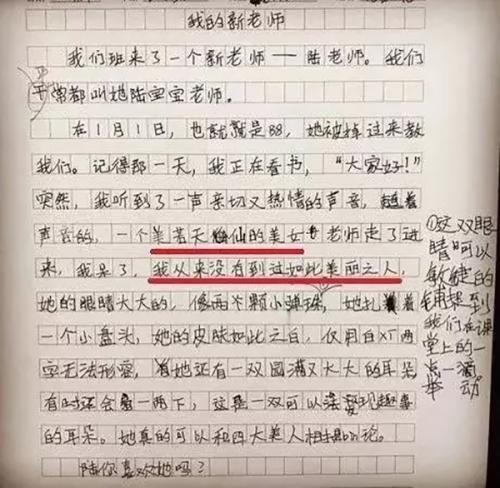 我的新老师
我们班来了一个新老师——陆老师。我们
平常都叫她陆宝宝老师。
在1月1日,也就就是88,她被掉过来教
我们。记得那一天,我正在看书,“大家好!”
突然,我听到了一声亲切又热情的声音,随着
声音的,一个美若天仙的美女老师走了进
来,我呆了,我从来没有到过如此美丽之人,
她的眼睛大大的,像两个颗小弹珠,她扎着
一个小盘头,她的皮肤如此之白,仅用白XT两
字无法形容,她还有一双圆满又大大的耳朵
有时还会一两下,这是一双可以发现趣事
的耳朵。她真的可以和四大美人相提bin论。
陆你喜欢她吗?
①这双眼
睛可以
敏捷的
捕捉到
我们在课
堂上的一
点一滴
举动